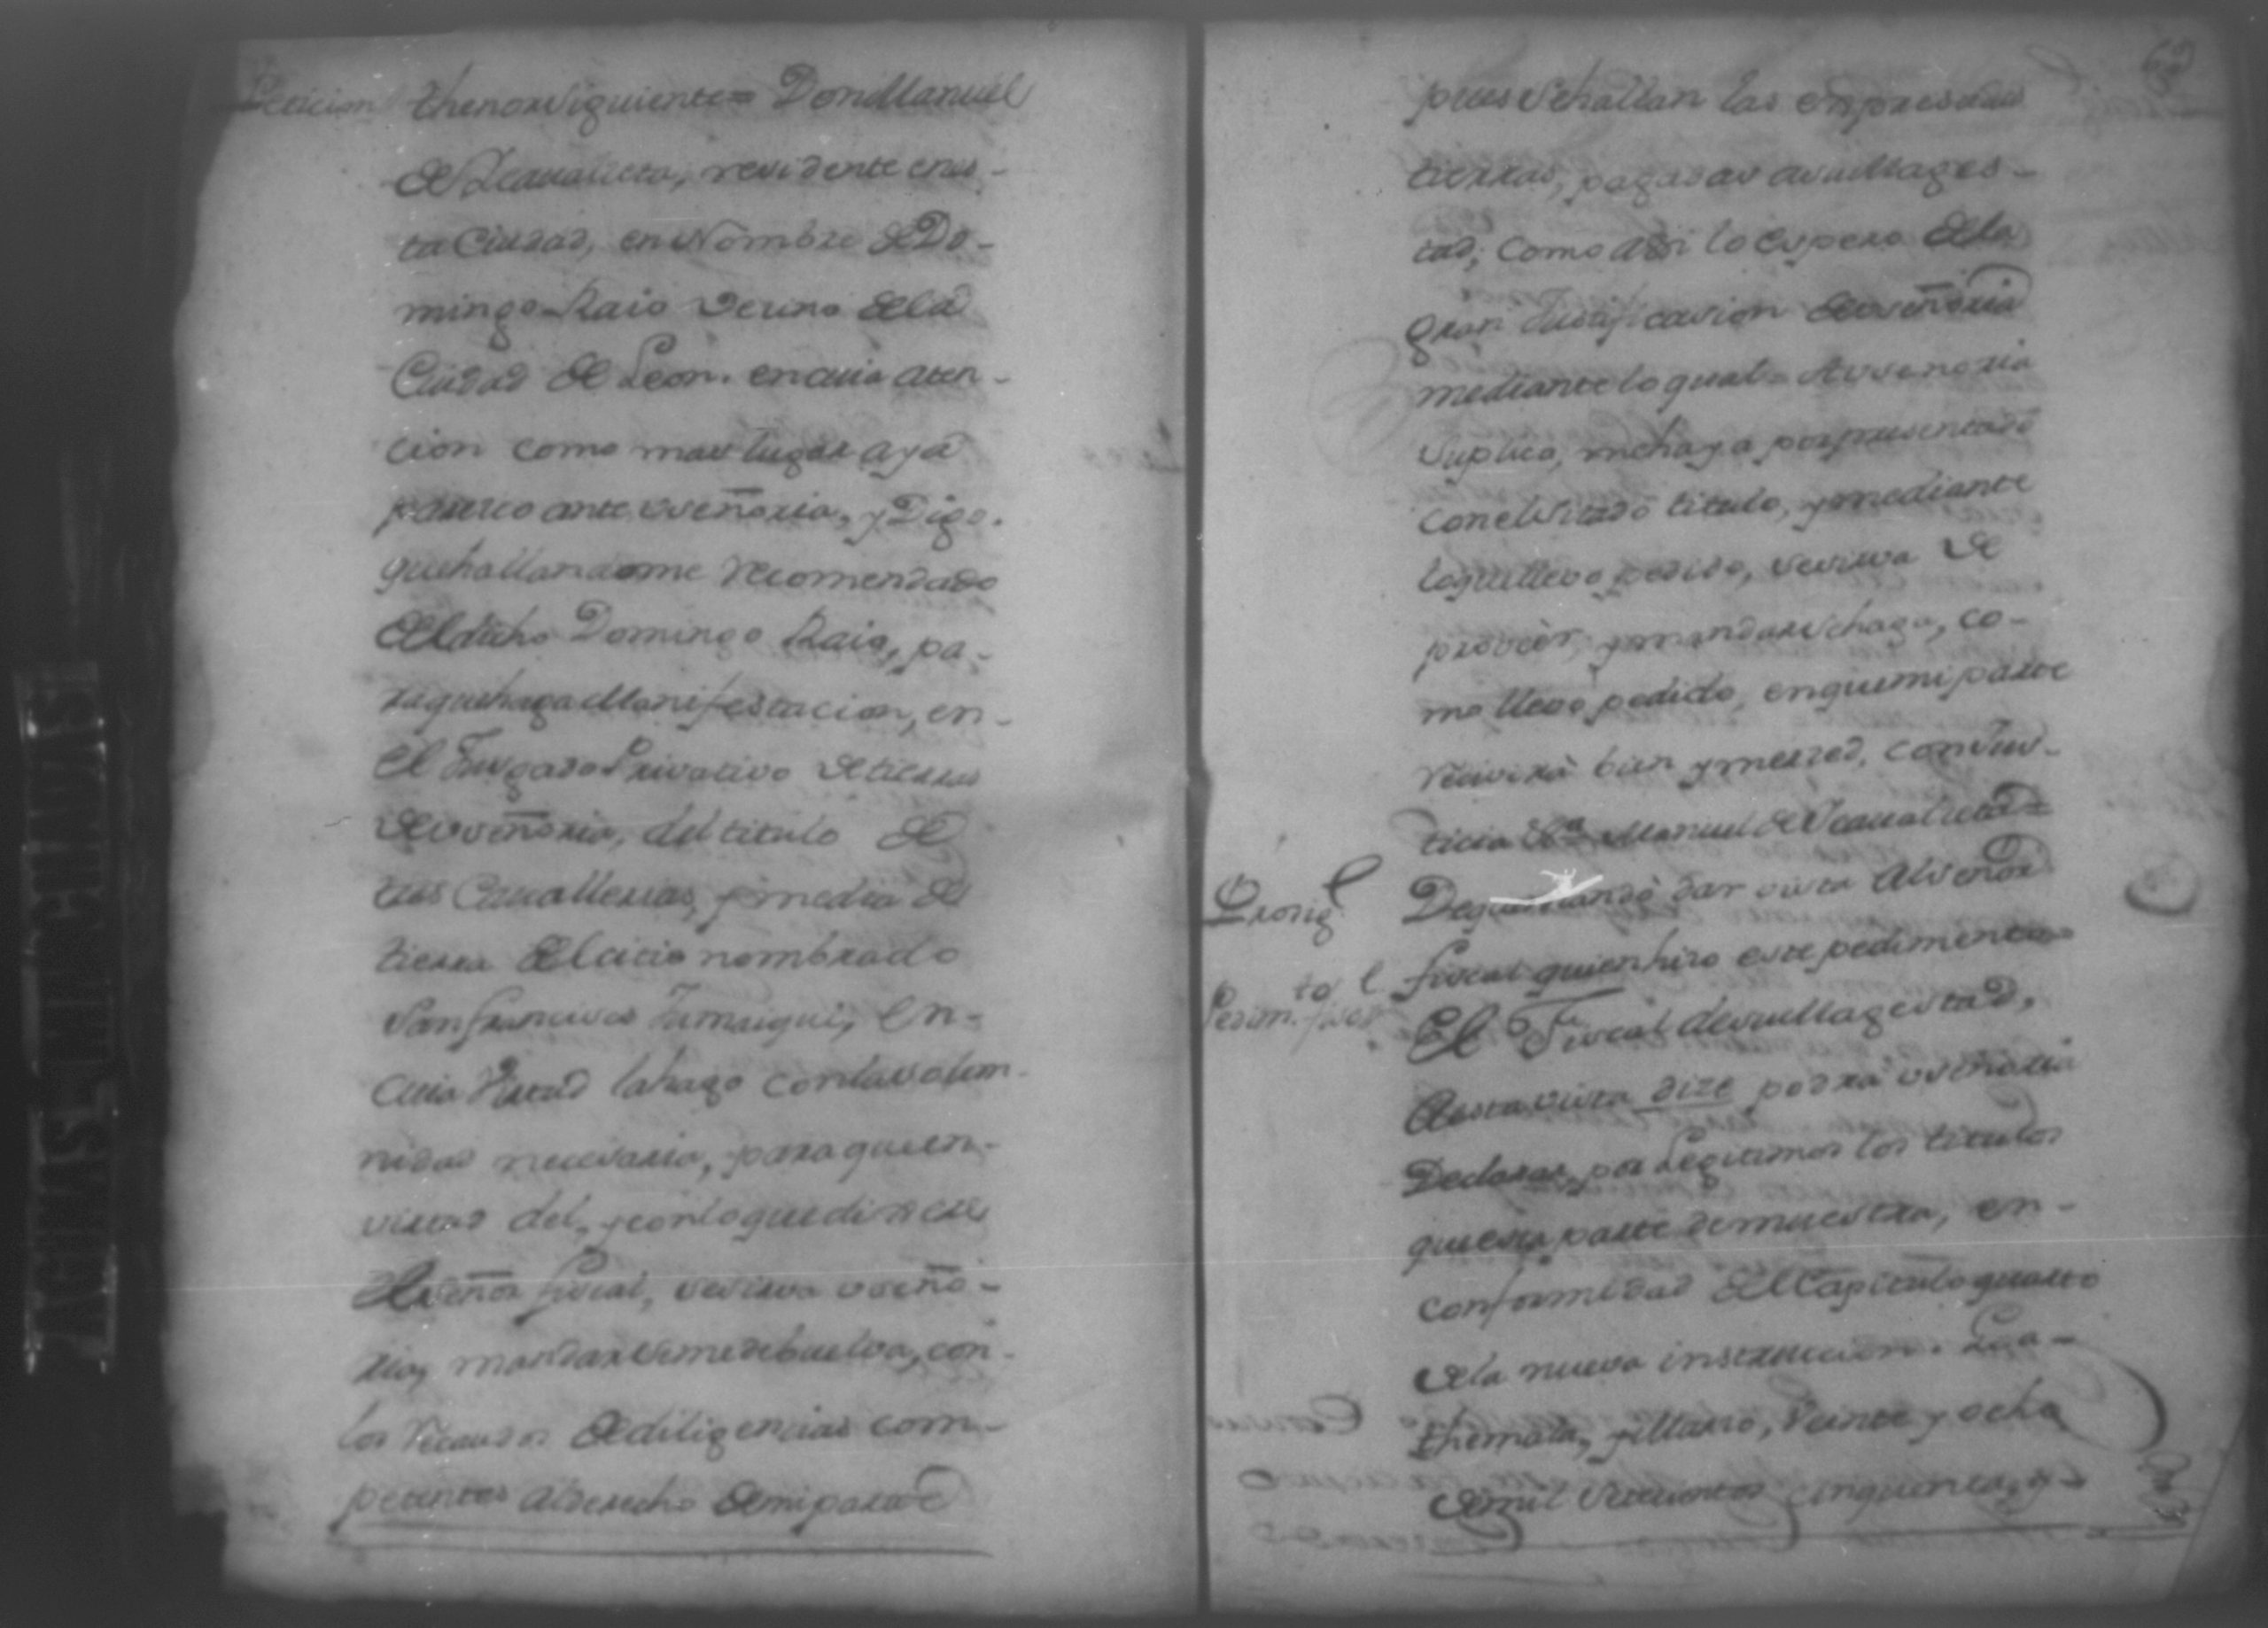 Peticion thenor siguiente = Don Manuel
de Zeaualieta, residente en es-
ta Ciudad, en Nombre de Do-
mingo Raio Vecino de la
Ciudad de Leon. en cuia aten-
cion como mas lugar aya
paresco ante vseñoria, y Digo.
que hallandome recomendado
del dicho Domingo Raio, pa-
ra que haga Manifestacion, en-
el Jusgado Privativo de tierras
de vseñoria, del titulo de
tres Cauallerias, y media de
tierra del citio nombrado
San francisco, en-
cuia Virtud la hago con la solem-
nidad necesaria, para que en-
vistad del, y con lo que dixere
el señor fiscal, se sirva vseño-
ria, mandar se me debuelva, con-
los recaudos de diligencias com-
petentes al derecho de mi parte
pues se hallan las expresadas
tierras, pagadas a su Mages-
tad; como assi lo espero de la
gran Justificasion de vseñoria
mediante lo qual = A vsenoria
suplico, me haya por presentado
con el sitado titulo, y mediante
lo que llevo pedido, se sirva de
proveèr, y mandar se haga, co-
mo llevo pedido, en que mi parte
recivirà bien y merzed, con Jus-
ticia &a Manuel de Zeaualieta =
Prosig. De que mandè dar vista al señor
fiscal quien hizo este pedimento
Pedimto. fiscl. El Fiscal de su Magestad,
a esta vista dize podrà vseñoria
Declarar, por Legitimos los titulos
que esta parte demuestra, en-
conformidad del Capitulo quarto
de la nueva instruccion. Gua-
themala, y Marzo, Veinte y ocho
de mil setecientos cinquenta, y-